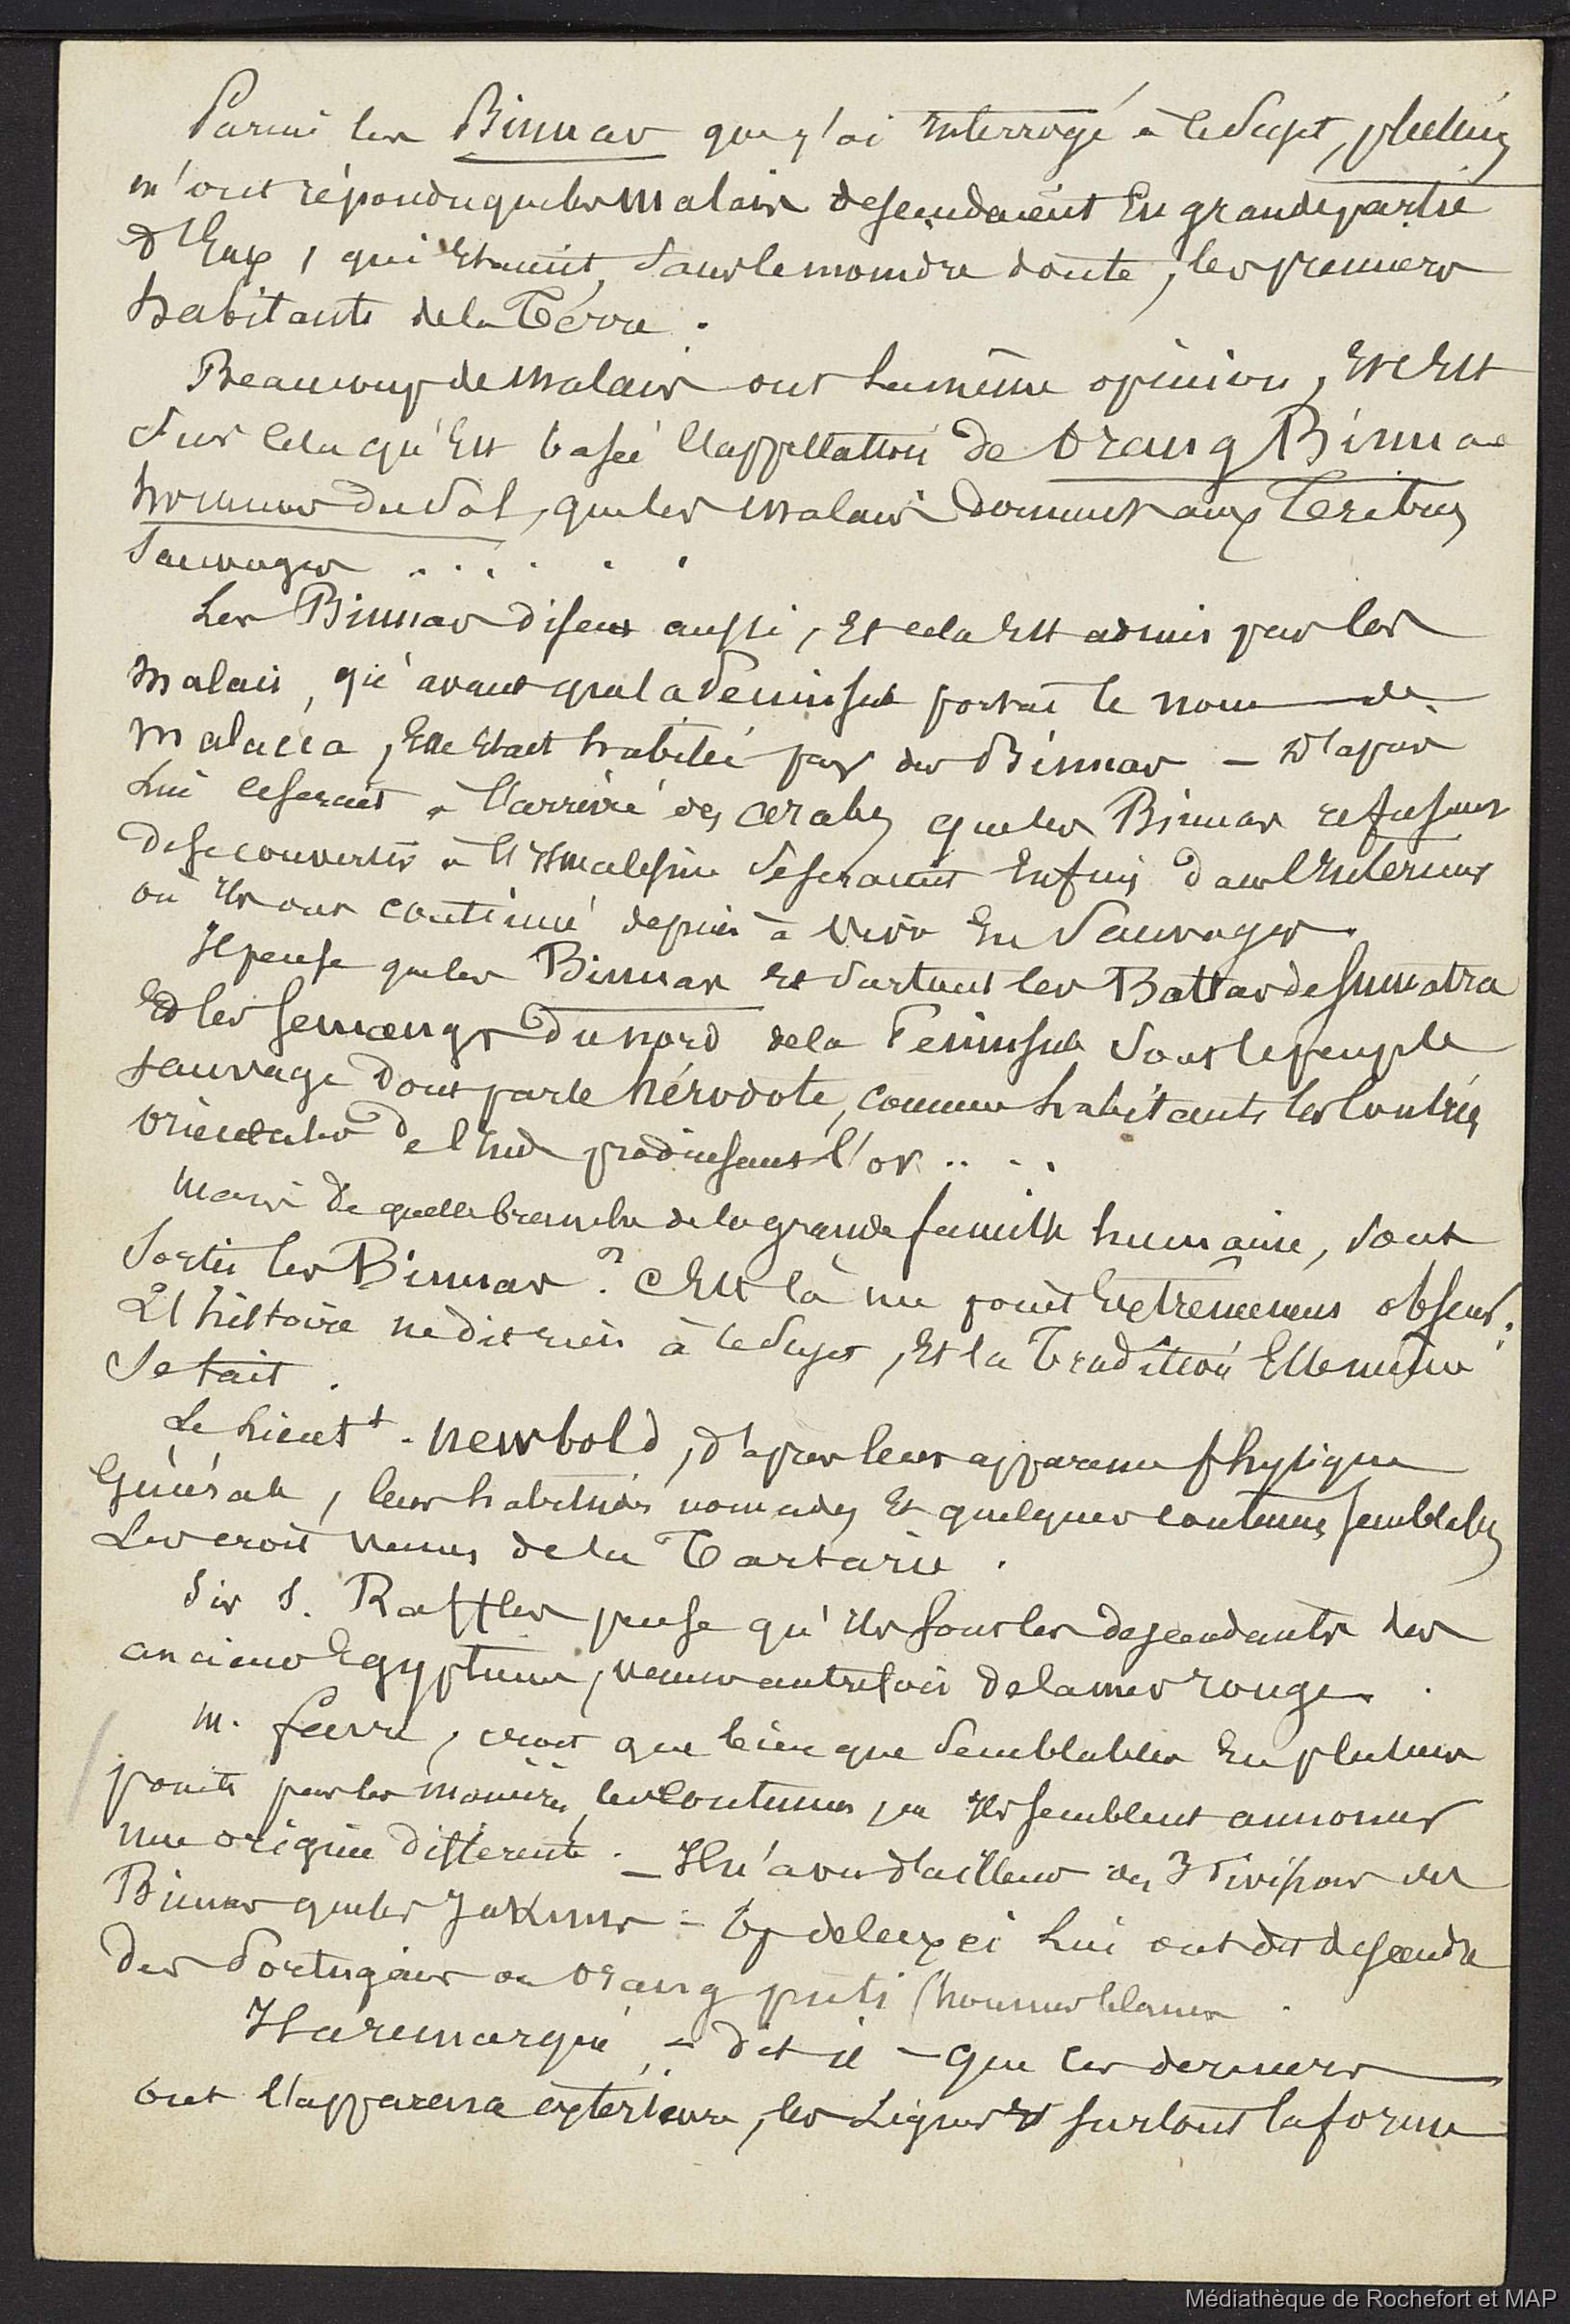 Parmi les Binuas que j'ai interrogé à ce Sujet, plusieurs
m'ont répondu que les Malais descendaient En grande partie
d'Eux, qui Etaient, sans le moindre doute, les premiers
habitants de la Terre.
Beaucoup de Malais ont la même opinion, Et c'Est
sur cela qu'Est basée l'appellation de Orang Binua
hommes du Sol, que les Malais donnent aux Tribus
Sauvages ......
Les Binuas disent aussi, Et cela Est admis par les
Malais, qu'avant que la Peninsule portat le nom de
Malacca, Elle Etait habitée par des Binuas – D'après
lui ce serait à l'arrivée des arabes que les Binuas refusant
de se convertir à l'Ismalisme se seraient Enfuis dans l'Interieur
où ils ont continué depuis à vivre En Sauvages.
Il pense que les Binuas Et surtout les Battas de Sumatra
Et les Semangs du nord de la Peninsule sont le peuple
sauvage dont parle hérodote, comme habitants les Contrées
orientales de l'Inde produisant l'or ....
Mais de quelle branche de la grande famille humaine, sont
Sortis les Binuas ? C'Est là un point Extrêmement obscur :
L'histoire ne dit rien à ce Sujet, Et la Tradition Elle même
Se tait.
Le Lieutt. Newbold, d'après leur apparence physique
Générale, leurs habitudes nomades Et quelques coutumes semblables
Les croit venus de la Tartarie.
Sir S. Raffles pense qu'ils sont les descendants des
anciens Egyptiens, venus autrefois de la mer rouge.
M. favre, croit que bien que Semblables En plusieurs
points par les manières, les Coutumes, ils semblent annoncer
une origine differente. – Il n'a vu d'ailleurs des 3 divisions des
Binuas que les Jakuns – de ceux ci Lui ont dit descendre
des Portugais ou Orang puti (hommes blancs
Il a remarqué, – dit il – que ces derniers
ont l'apparence extérieure, les Lignes Et surtout la forme
Médiathèque de Rochefort et MAP